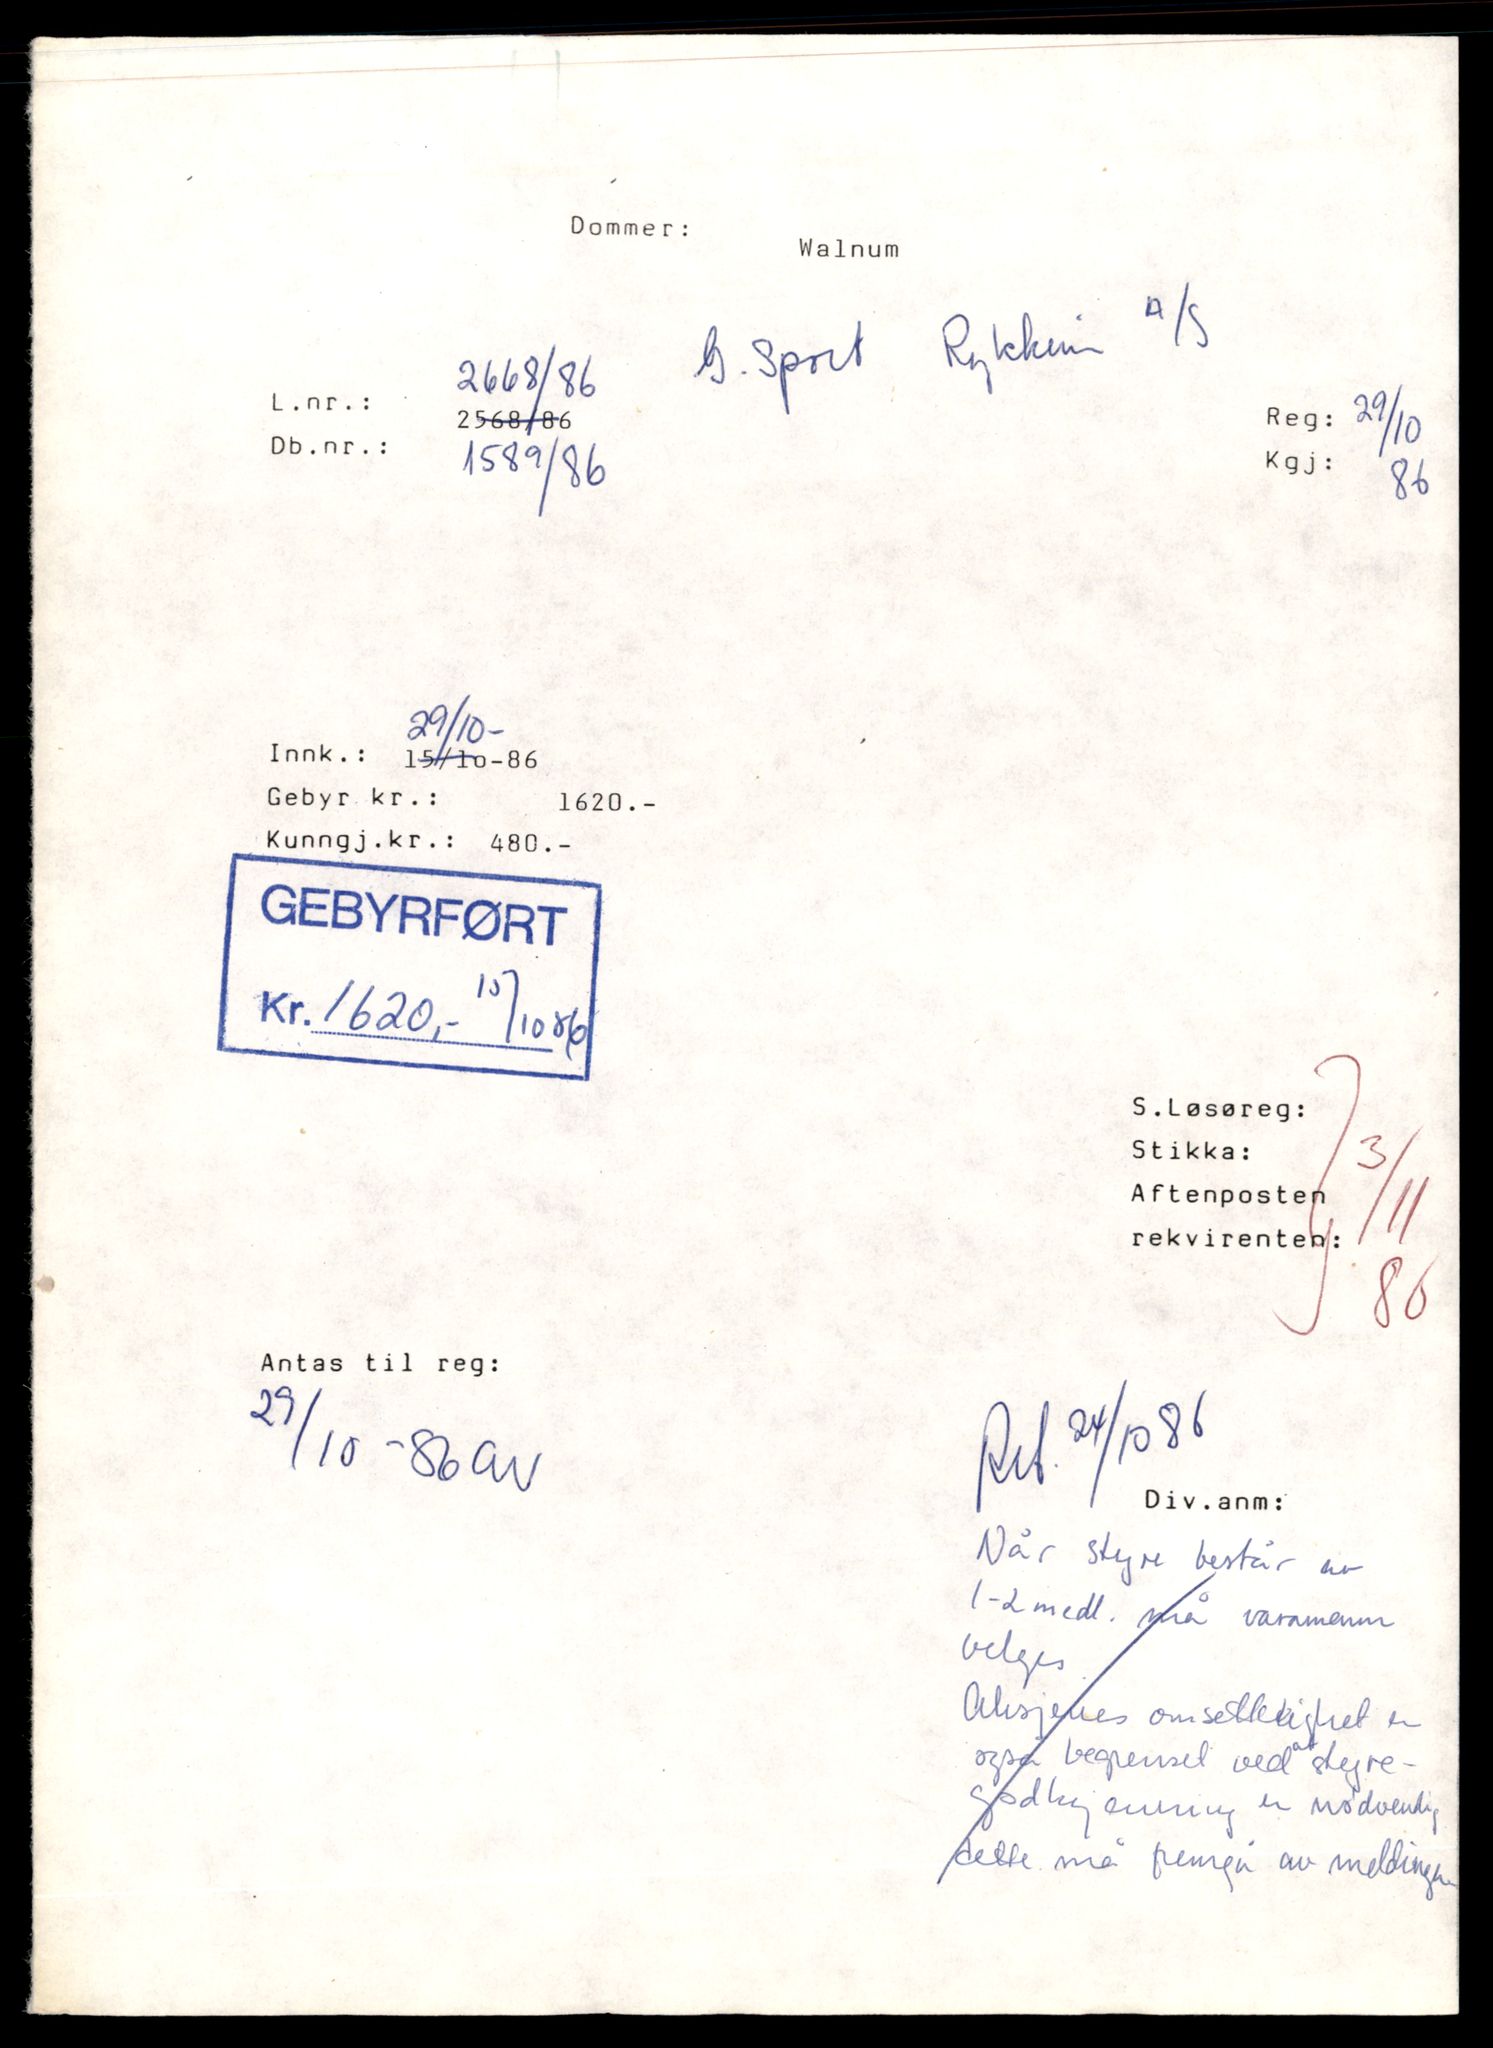 Dommer:
Walnum
G. Sport Rykkinn A/S
L.nr.: 2668/86
2568/86
Db.nr.: 1589/86
Reg: 29/10
Kgj: 86
29/10-
Innk.: 15/10-86
Gebyr kr.: 1620.-
Kunngj.kr.: 480.-
GEBYRFØRT
Kr. 1620,- 15/10 86
S.Løsøreg:
Stikka: 3/11
Aftenposten
rekvirenten: 86
Antas til reg:
29/10 -86 av
Ret. 24/10 86
Div.anm:
Når styre består av
1-2 medl. må varamenn
velges
Aksjenes omsettelighet er
også begrenset ved at styre-
godkjenning er nødvendig
dette må fremgå av meldingen